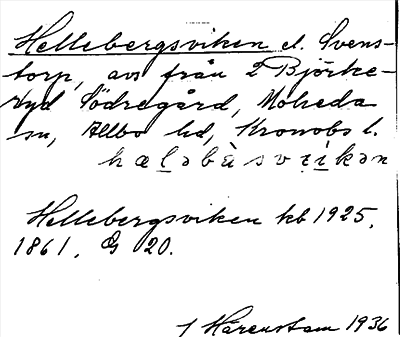 Hellebergsviken el. Svens-
torp, avs från 2 Björke-
ryd Södregård, Moheda
sn, Allbo hd, Kronobs l.
hæləbàsvikən
Hellebergsviken kb 1925,
1861, G 20.
1 Hårenstam 1936